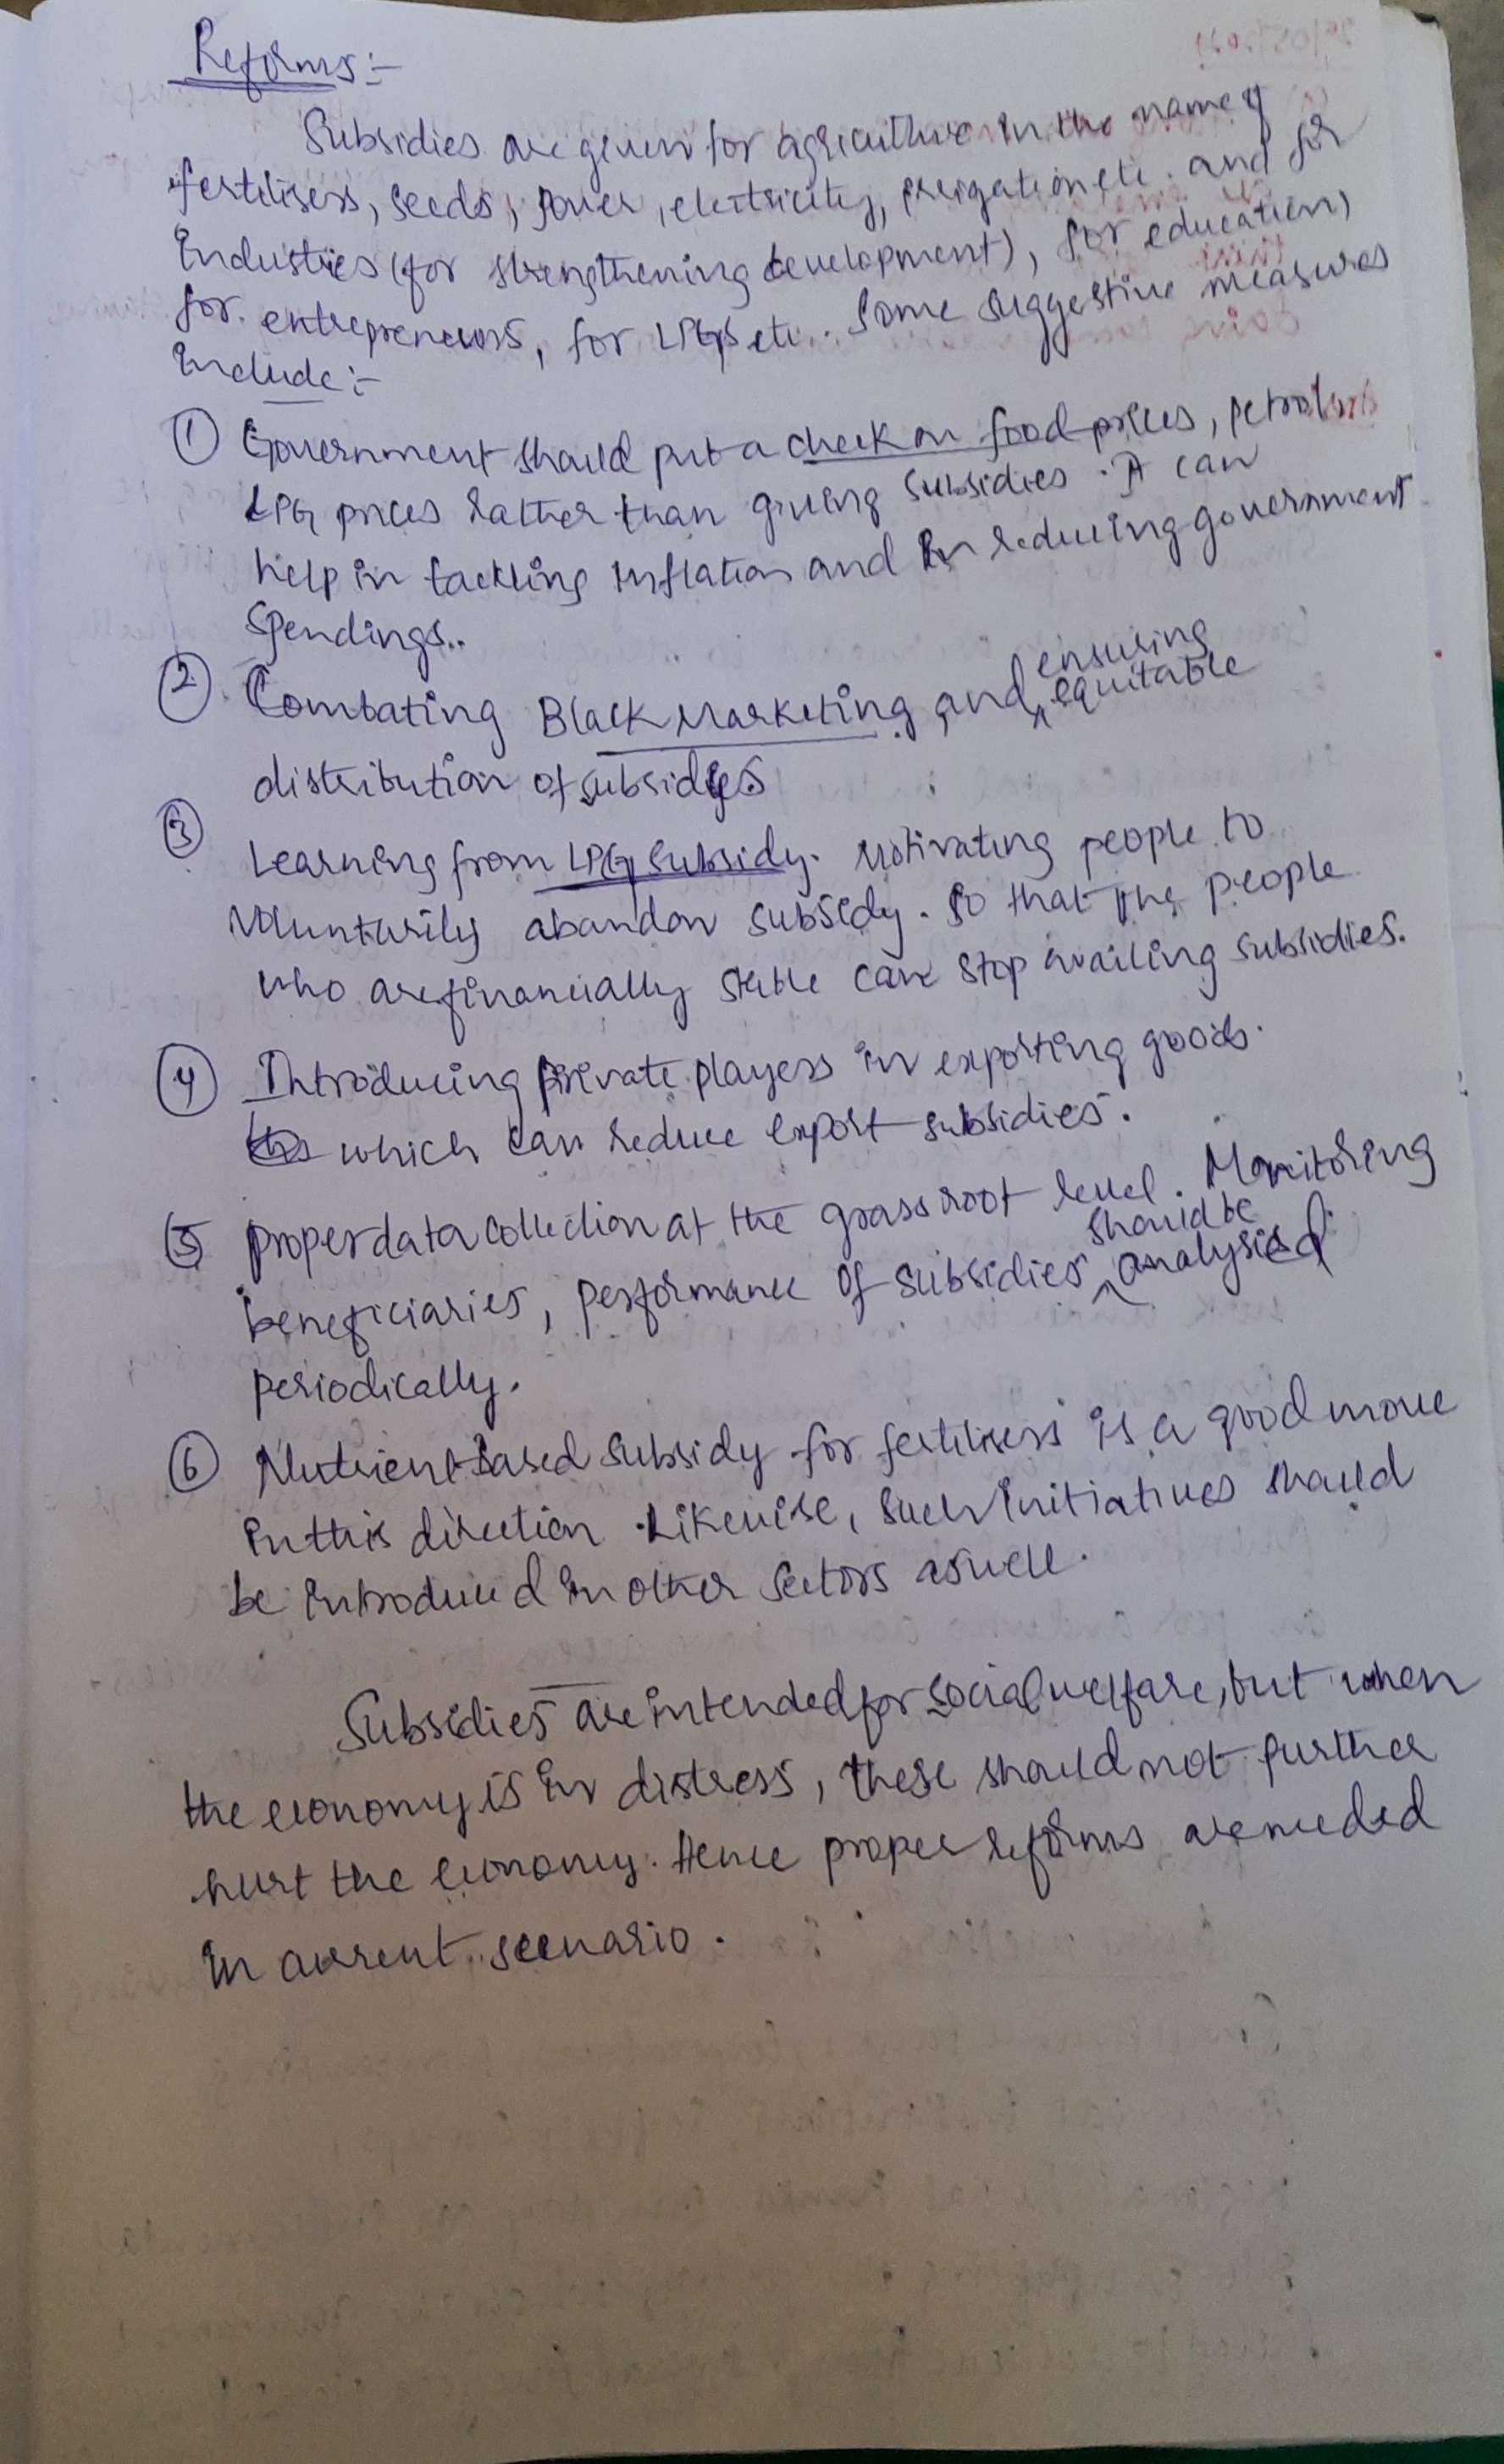 Reforms:-
Subsidies are given for agriculture in the name of
fertilisers, seeds, power, electricity, irrigation etc. and for
Industries (for strengthening development), for education,
for entrepreneurs, for LPGs etc.. Some suggestive measures
include:-
① Government should put a check on food prices, petrol,
LPG prices rather than giving subsidies. It can
help in tackling Inflation and in reducing government
spendings..
② Combating Black Marketing and ensuring equitable
distribution of subsidies
③ Learning from LPG subsidy. Motivating people to
voluntarily abandon subsidy. So that the people
who are financially stable can stop availing subsidies.
④ Introducing private players in exporting goods.
which can reduce export subsidies.
⑤ Proper data collection at the grassroot level. Monitoring
beneficiaries, performance of subsidies should be analysied
periodically.
⑥ Nutrient Based subsidy for fertilisers is a good move
in this direction. Likewise, such initiatives should
be introduced in other sectors as well.
Subsidies are intended for social welfare, but when
the economy is in distress, these should not further
hurt the economy. Hence proper reforms are needed
in current scenario.